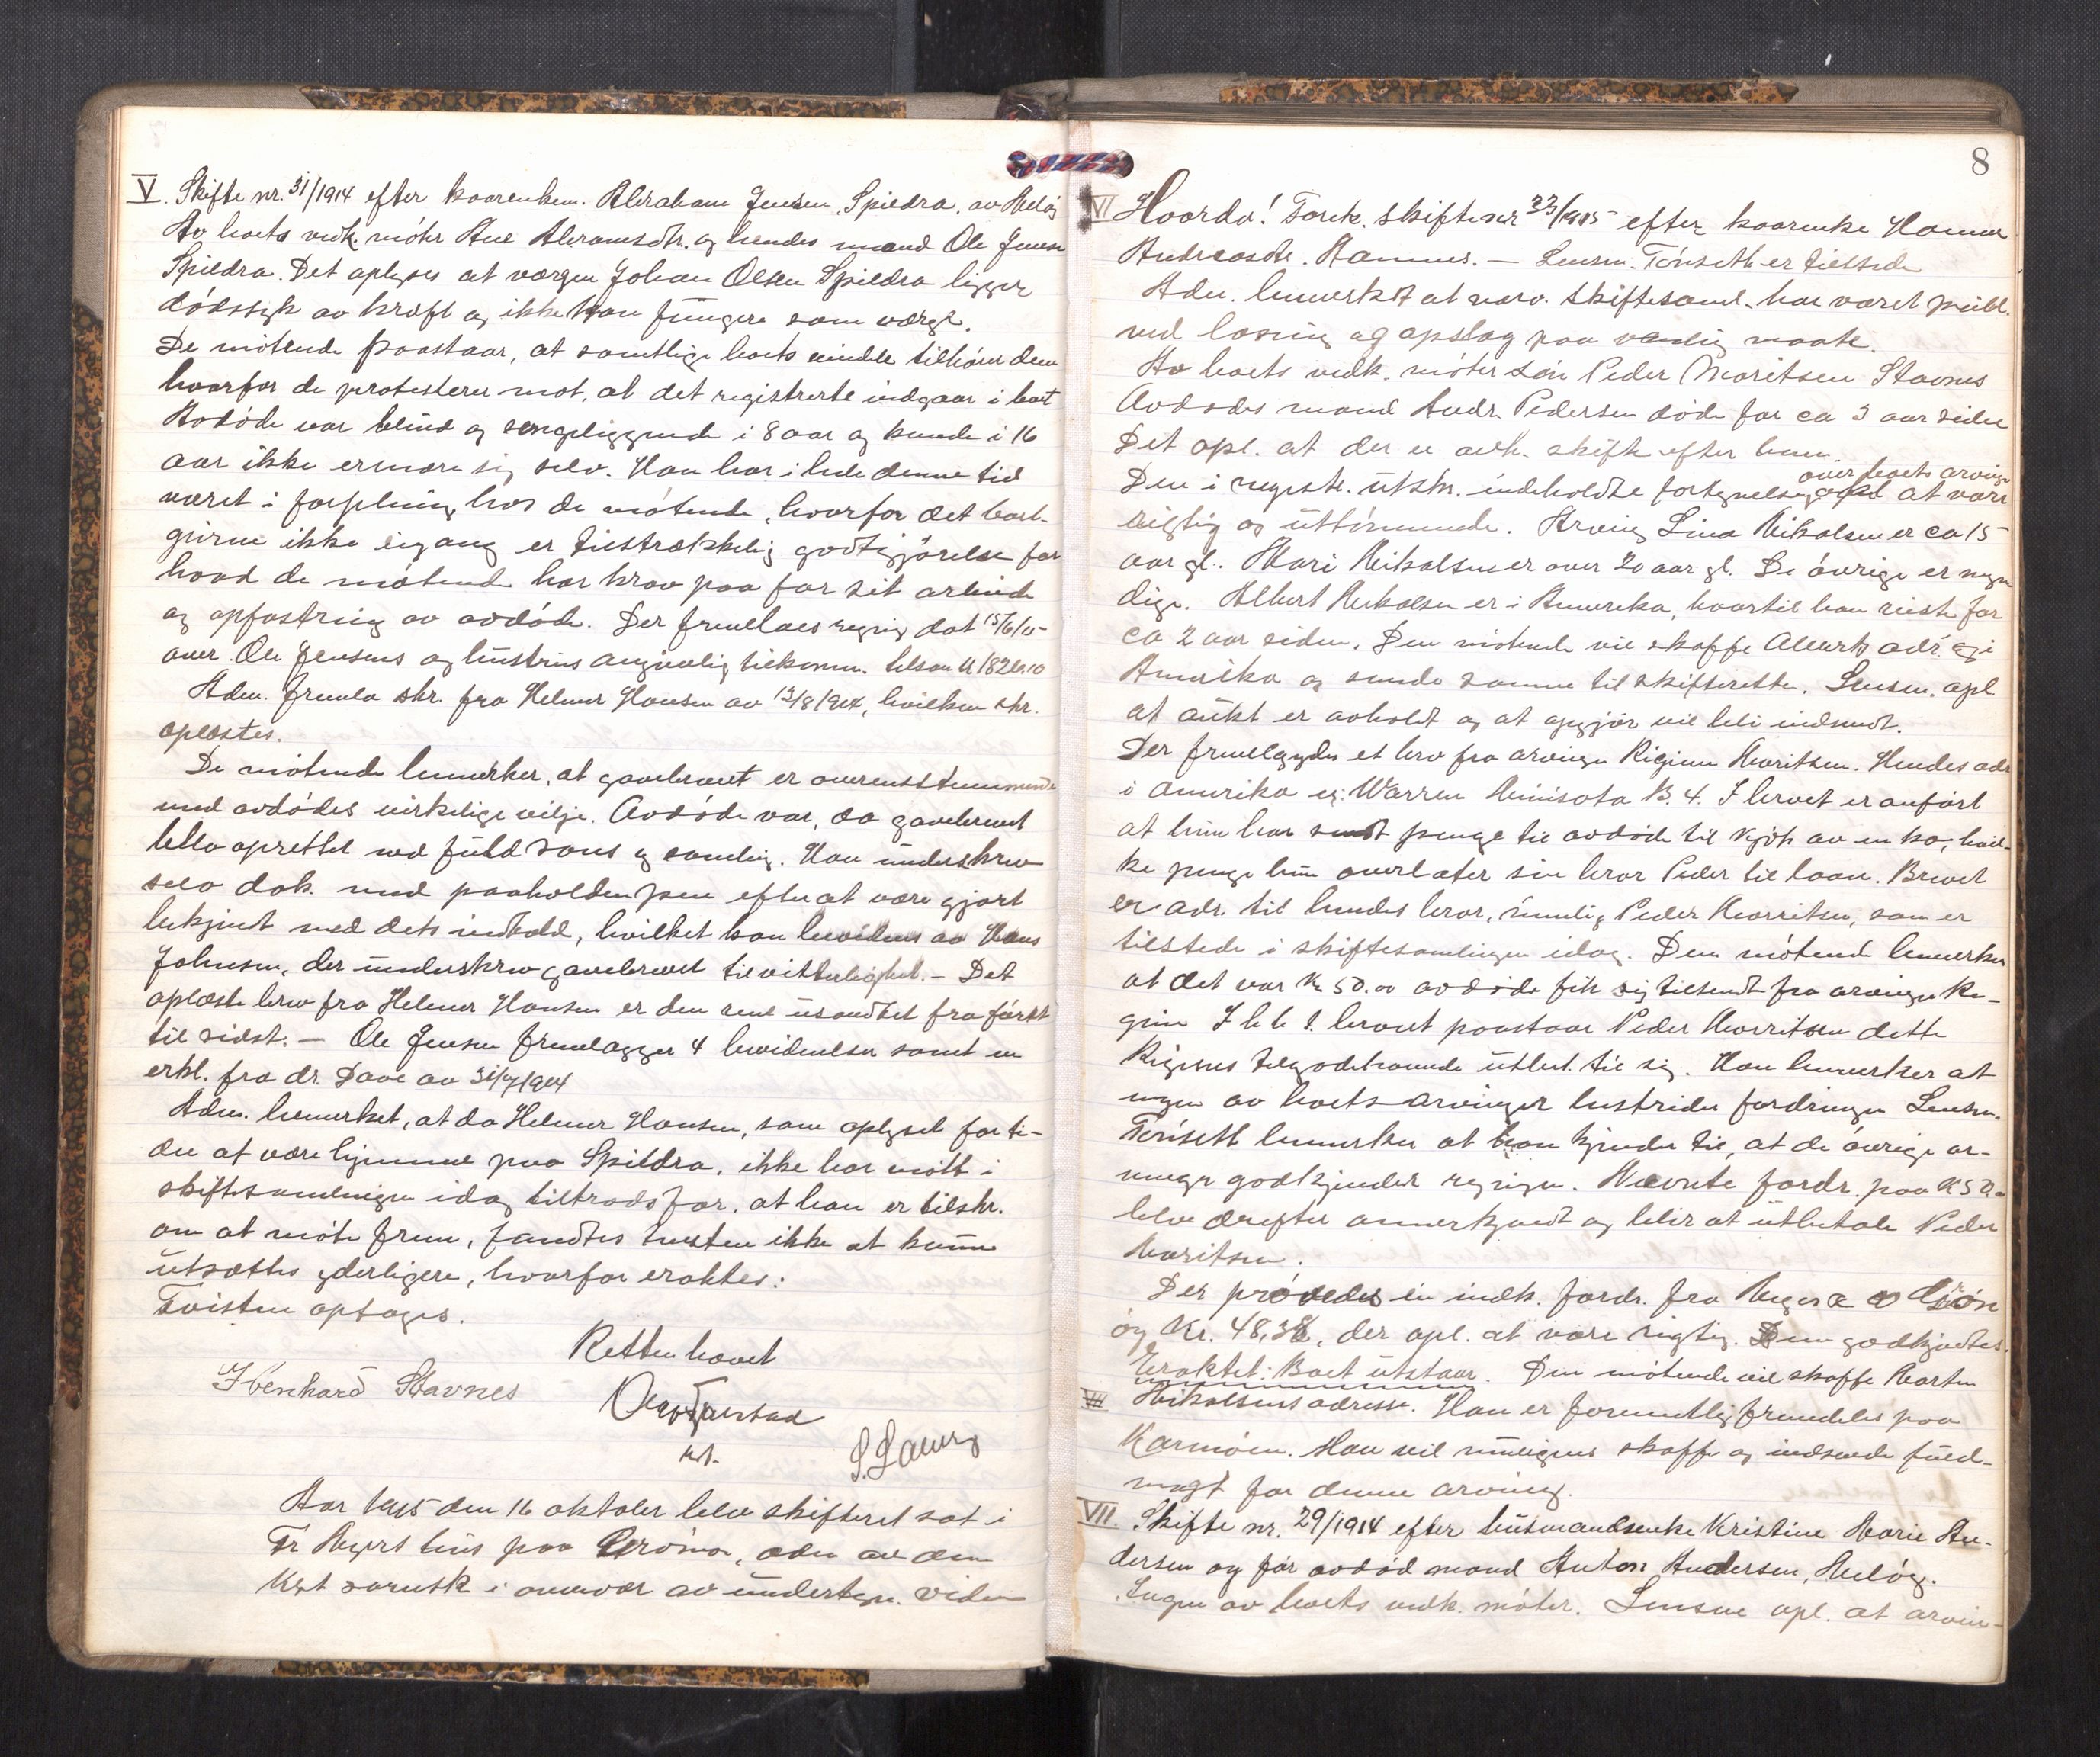 V. Skifte nr. 31/1914 efter kaarenkem. Abraham Jensen, Spildra, av Meløy
Av boets vedk. møter Ane Abramsdtr. og hendes mand Ole Jensen
Spildra. Det oplyses at vergen Johan Olsen Spildra ligger
dødssyk av kræft og ikke kan fungere som verge.
De møtende paastaar, at samtlige boets eiendele tilhører dem
hvorfor de protesterer mot, at det registrerte indgaar i boet
Avdøde var blind og sengeliggende i 8 aar og kunde i 16
aar ikke ernære sig selv. Han har i hele denne tid
været i forpleining hos de møtende, hvorfor det
ikke engang er tilstrækkelig godtgjørelse for
hvad de møtende har krav paa for sit arbeide
og opfostring av avdøde. Der fremlaes regning dat 15/6/15
over Ole Jensens og hustrus angivelig tilkomm. belson kr 1820.10
Adm. fremla skr. fra Helmer Hansen av 13/8 1914, hvilken skr.
oplæstes.
De møtende bemerker, at gavebrevet er overensstemmende
med avdødes virkelige vilje. Avdøde var, da gavebrevet
blev oprettet ved fuld sans og samling. Han underskrev
selv dok. med paaholden pen efter at være gjort
bekjent med dets indhold, hvilket kan bevidnes av Hans
Johnsen, der underskrev gavebrevet til vitterlighet. – Det
oplæste brev fra Helmer Hansen er den rene usandhet fra først
til sidst. – Ole Jensen fremlægger 4 bevidnelser samt en
erkl. fra dr. Dave av 31/7 1914
Adm. bemerket, at da Helmer Hansen, som oplyset for ti-
den at være hjemme paa Spildra, ikke har møtt i
skiftesamlingen idag tiltrods for, at han er tilskr.
om at møte frem, fandtes tvisten ikke at kunne
utsættes yderligere, hvorfor eraktes:
Tvisten optages.
Retten hævet
Ibenhard Stavnes
kst.
Aar 1915 den 16 oktober blev skifteret sat i
Fr Meyers hus paa Ørnes, av den
kgt sorensk i overvær av undertegn. vidner
8
VI Hvorda! Foretk. skifte nr 23/1915 efter kaarenke Hanna
Andreasdtr. Ramnes. – Lensm. Tønseth er tilstede
Adm. bemerket at nærv. skiftesaml. har været publ.
ved læsning og opslag paa vanlig maate.
Av boets vedk. møter søn Peder Moritsen Stavnes
Avdødes mand Andr. Pedersen døde for ca 3 aar siden
Det opl. at der er avh. skifte efter ham.
over boets arvinger
Den i registr. utskr. indeholdte fortegnelse opl. at være
rigtig og uttømmende. Arving Lina Nikolsen er ca 15
aar gl. Mari Nikolsen er over 20 aar gl. De øvrige er myn
dige. Albert Nikolsen er i Amerika, hvortil han reiste for
ca 2 aar siden. Den møtende vil skaffe Alberts adr. i
Amerika og sende samme til skifteretten. Lensm. opl.
at aukt er avholdt og at opgjør vil bli indsendt.
Der fremlægges et brev fra arvingen Regine Moritsen. Hendes adr
i Amerika er: Warren Minisota B. 4. I brevet er anført
at hun har sendt penge til avdøde til kjøp av en ko, hvil-
ke penge hun overlater sin bror Peder til laan. Brevet
er adr. til hendes bror, nemlig Peder Morritsen, som er
tilstede i skiftesamlingen idag. Den møtende bemerker
at det var kr 50.00 avdøde fik sig tilsendt fra arvingen Re-
gine I h. t. brevet paastaar Peder Morritsen dette
Regines tilgodehavende utbet. til sig. Han bemerker at
ingen av boets arvinger bestrider fordringen Lensm.
Tønseth bemerker at han kjender til, at de øvrige ar-
vinger godkjender regningen. Nævnte fordr. paa kr 50.-
blev derefter anerkjendt og blir at utbetale Peder
Moritsen.
Der prøvedes en indk. fordr. fra Meyer
Kr. 48,38, der opl. at være rigtig. Den godkjendtes.
Eraktet: Boet utstaar. Den møtende vil skaffe Marten
Nikolsens adresse. Han er formentlig fremdeles paa
Karmøen. Han vil muligens skaffe og indsende fuld-
magt for denne arving.
VII. Skifte nr. 29/1914 efter husmandsenke Kristine Marie An-
dersen og før avdød mand Anton Andersen, Meløy.
Ingen av boets vedk. møter. Lensm opl. at arvin-